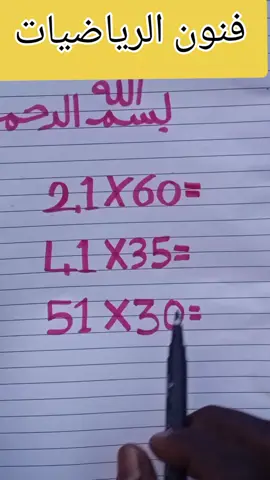 فنون الرياضيات
بسم الله الرحم
21X60=
41X35=
51X30=